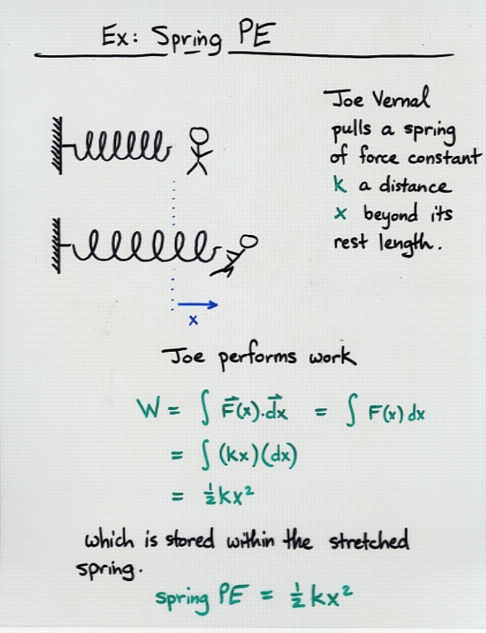 Ex: Spring PE
Joe Vernal
pulls a spring
of force constant
k a distance
x beyond its
rest length.
x
Joe performs work
W = ∫ F⃗(x).d⃗x = ∫ F(x) dx
= ∫ (kx)(dx)
= ½kx²
which is stored within the stretched
spring.
spring PE = ½kx²